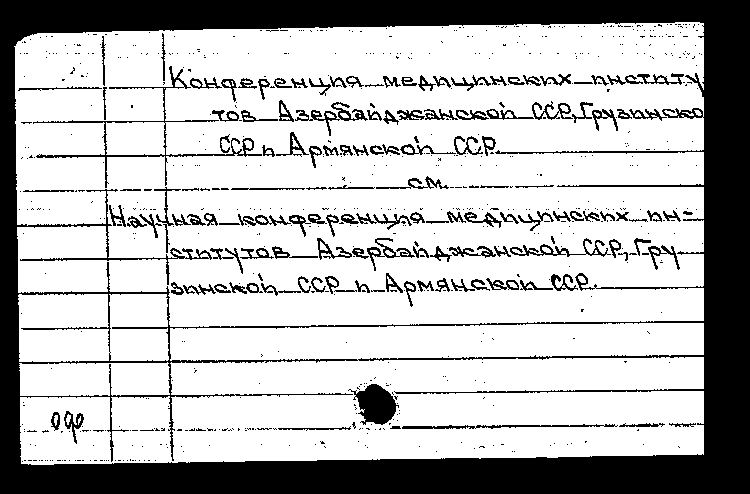 Конференция медицинских институ
тов Азербайджанской ССР, Грузинско
ССР и Армянской ССР.
см.
Научная конференция медицинских ин-
ститутов Азербайджанской ССР, Гру-
зинской ССР и Армянской ССР.